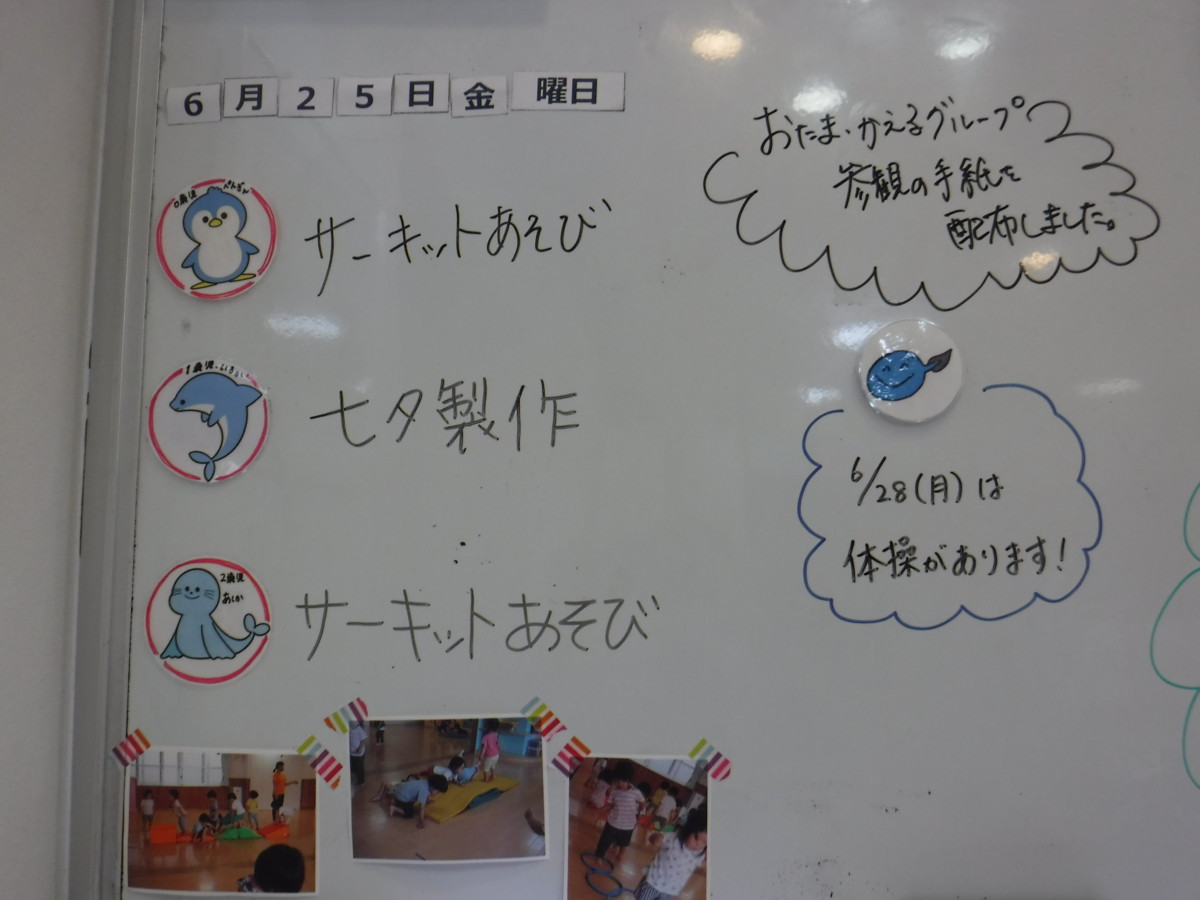 6月25日金曜日
0歳児 ぺんぎん
サーキットあそび
1歳児
七夕製作
2歳児
あしか
サーキットあそび
おたま・かえるグループ
参観の手紙を
配布しました。
6/28(月)は
体操があります!